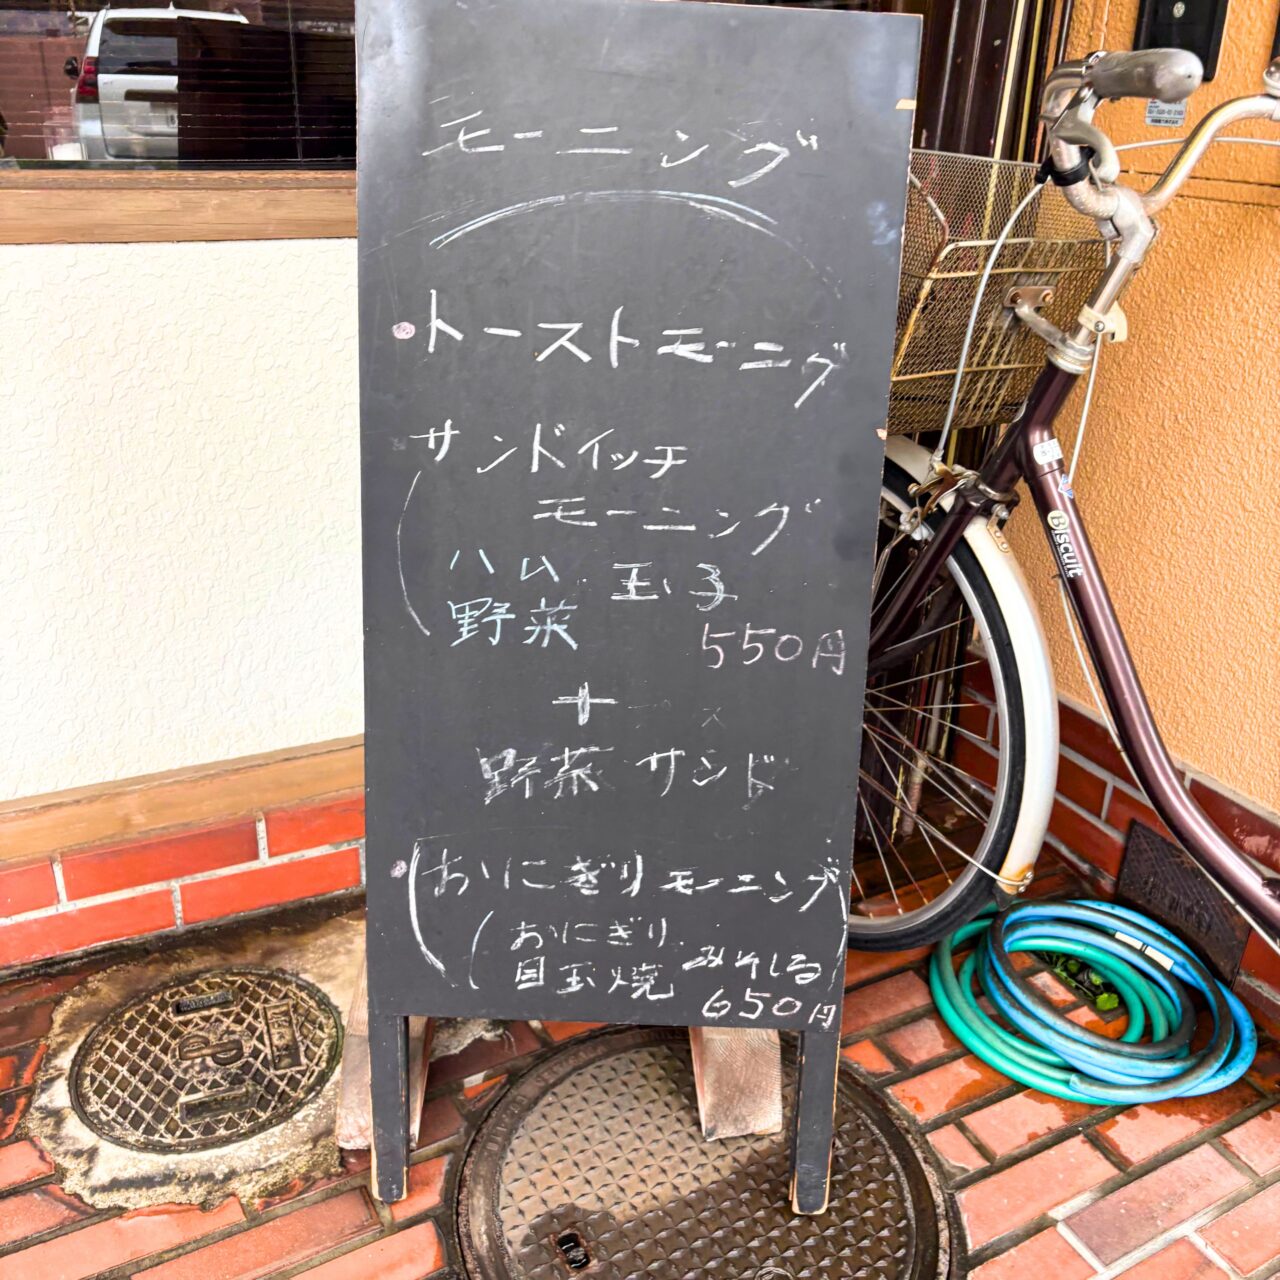 モーニング
・トーストモーニング
サンドイッチ
モーニング
ハム 玉子
野菜
550円
+
野菜サンド
・おにぎりモーニング
おにぎり
目玉焼 みそしる
650円
Biscuit